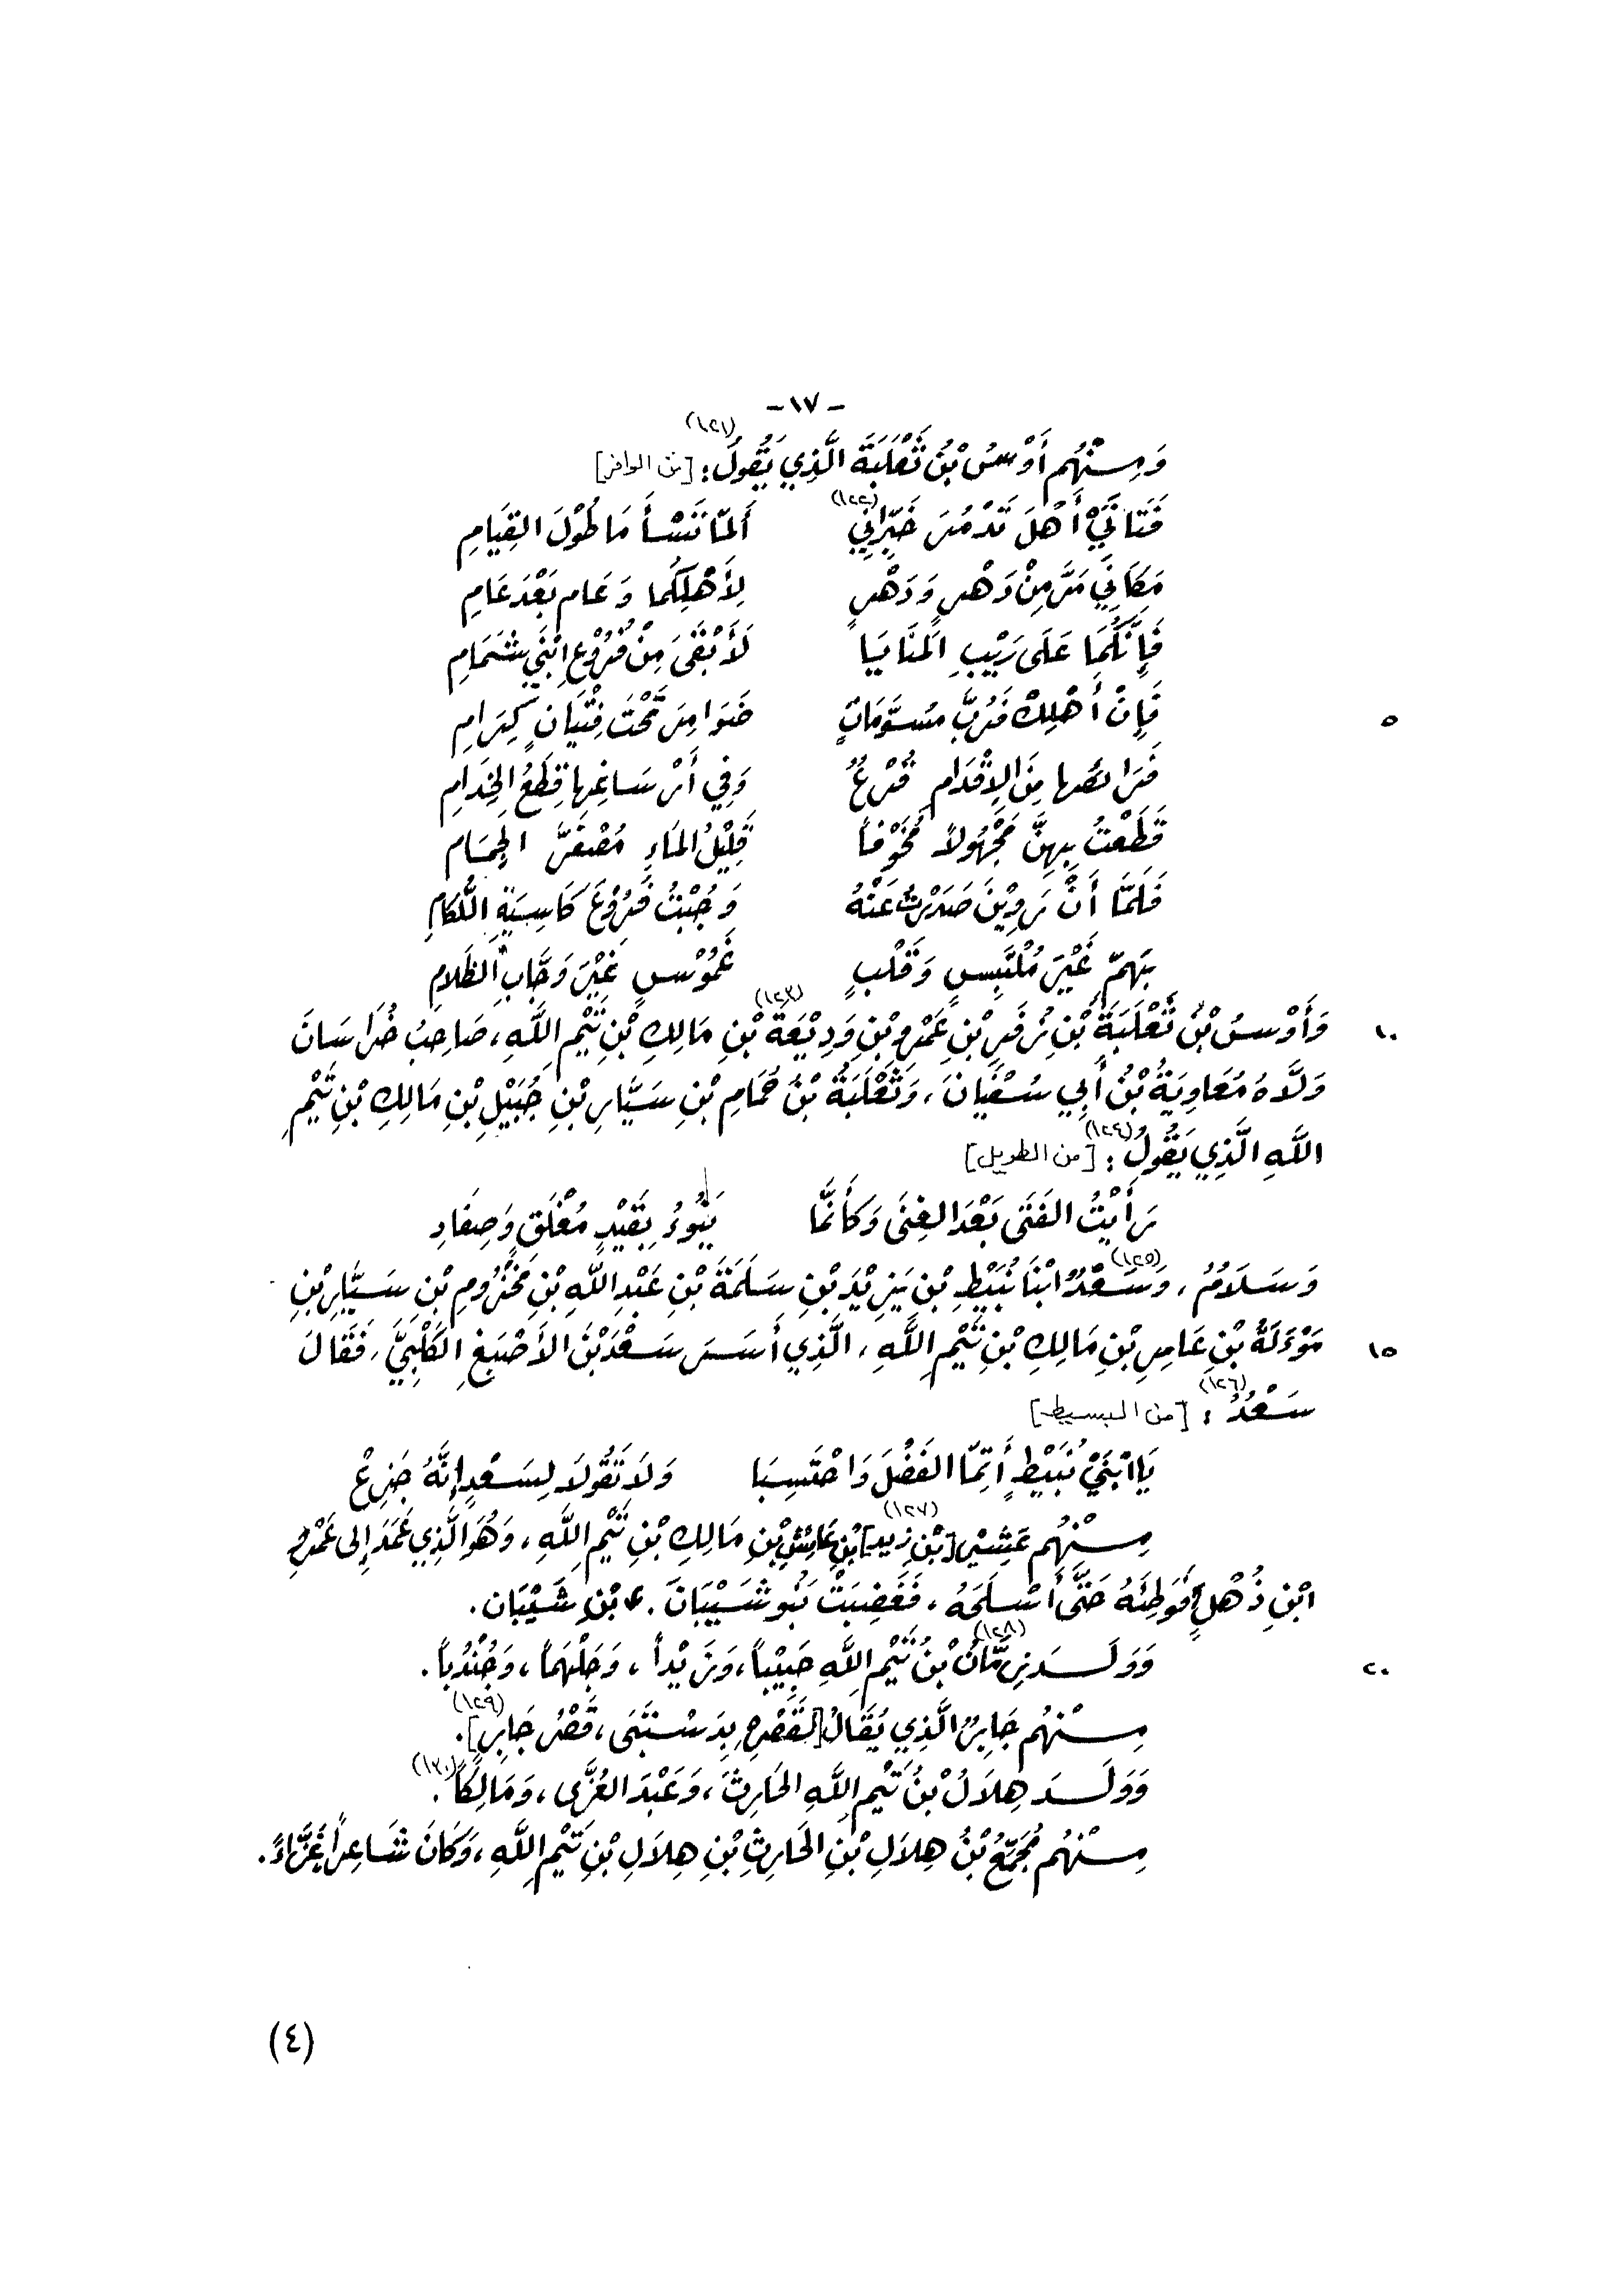 - ١٧ -
وَمِنْهُم أَوْسُ بْنُ ثَعْلَبَةَ الَّذِي يَقُولُ (١٢١): [من الوافر]
فَتَاتَيْ أَهْلَ تَدْمُرَ خَبِّرَانِي (١٢٢) أَلَمَّا تَسْأَمَا طُوْلَ القِيَامِ
مَكَانِي مَرَّ مِنْ دَهْرٍ وَدَهْرٍ لِأَهْلِكُمَا وَعَامٍ بَعْدَ عَامِ
فَإِنَّكُمَا عَلَى رَيْبِ المَنَايَا لَأَبْقَى مِنْ فُرُوْعِ ابْنَيْ شَمَامِ
٥ فَإِنْ أَهْلِكْ فَرُبَّ مُسَوَّمَاتٍ ضَوَامِرَ تَحْتَ فِتْيَانٍ كِرَامِ
فَرَائصُها مِنَ الإِقْدَامِ قُرْعٌ وَفِي أَرْسَاغِهَا قِطَعُ الخِدَامِ
قَطَعْتُ بِهِنَّ مَجْهُولاً مَخُوْفاً قَلِيْلَ المَاءِ مُصْفَرَّ الجِمَامِ
فَلَمَّا أَنْ رَوِيْنَ صَدَرْتُ عَنْهُ وَجُبْتُ فُرُوْعَ كَاسِيَةِ اللُّكَامِ
بِهَمٍّ غَيْرَ مُلْتَبِسٍ وَقَلْبٍ غَمُوْسٍ غَيْرَ وَجَّابِ الظَلامِ
١٠ وَأَوْسُ بْنُ ثَعْلَبَةَ بْنِ زُفَرِ بْنِ عَمْرِو بْنِ وَدِيْعَةَ (١٢٣) بْنِ مَالِكِ بْنِ تَيْمِ اللَّهِ، صَاحِبُ خُرَاسَانَ
وَلَّاهُ مُعَاوِيَةُ بْنُ أَبِي سُفْيَانَ، وَثَعْلَبَةُ بْنُ حُمَامِ بْنِ سَيَّارِ بْنِ جُبَيْلِ بْنِ مَالِكِ بْنِ تَيْمِ
اللَّهِ الَّذِي يَقُولُ (١٢٤): [من الطويل]
رَأَيْتُ الفَتَى بَعْدَ الغِنَى وَكَأَنَّمَا يَنُوءُ بِقَيْدٍ مُغْلَقٍ وَصِفَادِ
وَسَلَامُ، وَسَعْدٌ (١٢٥) ابْنَا نُبَيْطِ بْنِ يَزِيْدَ بْنِ سَلَمَةَ بْنِ عَبْدِ اللَّهِ بْنِ مَخْزُومِ بْنِ سَيَّارِ بْنِ
١٥ مَوْءَلَةَ بْنِ عَامِرِ بْنِ مَالِكِ بْنِ تَيْمِ اللَّهِ، الَّذِي أَسَرَ سَعْدَ بْنَ الأَصْبَغِ الكَلْبِيَّ، فَقَالَ
سَعْدٌ (١٢٦): [من البسيط]
يَا ابْنَيْ نُبَيْطٍ أَتِمَّا الفَضْلَ وَاحْتَسِبَا وَلَا تَقُولَا لِسَعْدٍ إِنَّهُ جَزِعْ
مِنْهُم عَتِيْسُ [بْنِ زيد] (١٢٧) بْنِ عَائِشِ بْنِ مَالِكِ بْنِ تَيْمِ اللَّهِ، وَهُوَ الَّذِي عَمَدَ إِلى عَمْرِو
ابْنِ ذُهْلٍ فَوَطِئَهُ حَتَّى أَسْلَحَهُ، فَغَضِبَتْ بَنُو شَيْبَانَ. بْنِ شَيْبَان.
٢٠ وَوَلَدَ زِمَّانُ (١٢٨) بْنُ تَيْمِ اللَّهِ حَبِيْباً، وَزَيْداً، وَجَلْهَمَاً، وَجُنْدُباً.
مِنْهُم جَابِرٌ الَّذِي يُقَالُ [لقَصْرِهِ بِدَسْتَبَى، قَصْرُ جَابِرٍ] (١٢٩).
وَوَلَدَ هِلَالُ بْنُ تَيْمِ اللَّهِ الحَارِثَ، وَعَبْدَ العُزَّى، وَمَالِكاً (١٣٠).
مِنْهُم مُجَمِّعُ بْنُ هِلَالِ بْنِ الحَارِثِ بْنِ هِلَالِ بْنِ تَيْمِ اللَّهِ، وَكَانَ شَاعِراً غَزَّاءً.
(٤)